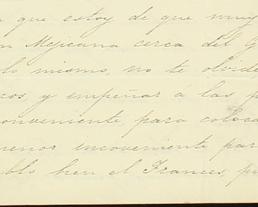 que estoy de que muy
Mejicana cerca del G
lo mismo, no te olvide
cos y empeñar á las p
conveniente para coloca
menor inconveniente par
ablo bien el Frances, pu